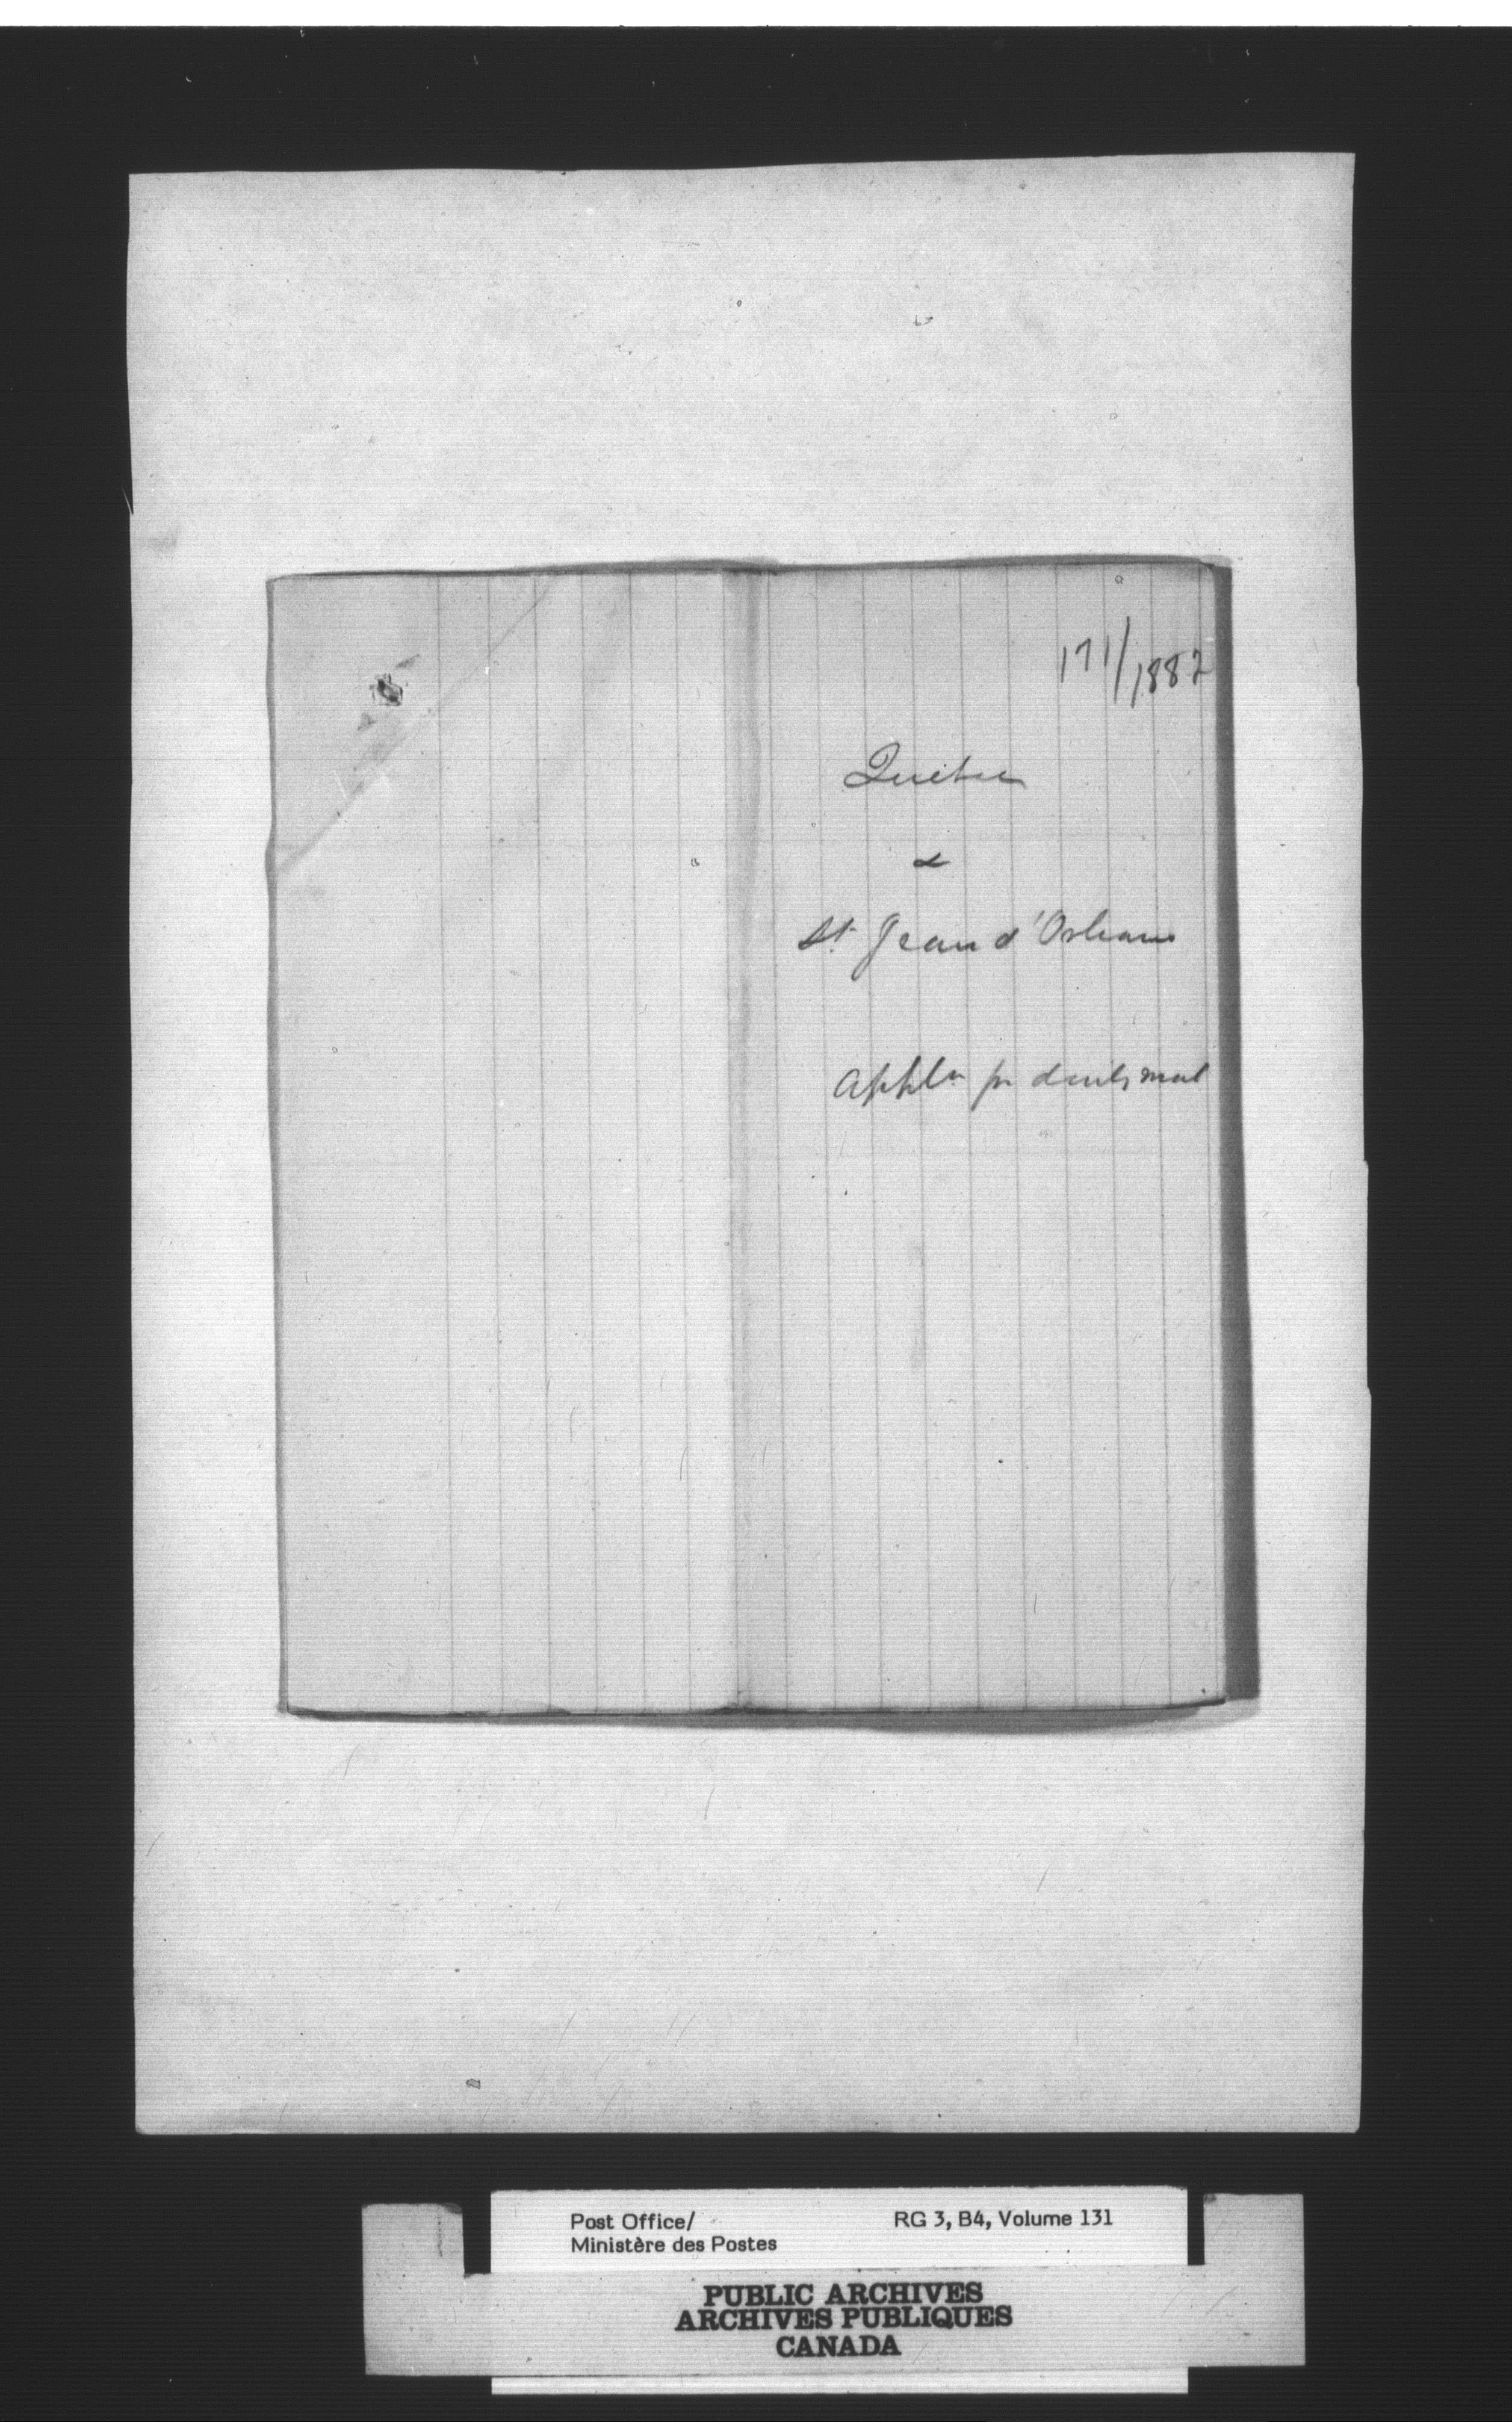 171/1887
Quebec
&
St. Jean d'Orleans
Appln for daily mail
Post Office/
Ministère des Postes
RG 3, B4, Volume 131
PUBLIC ARCHIVES
ARCHIVES PUBLIQUES
CANADA